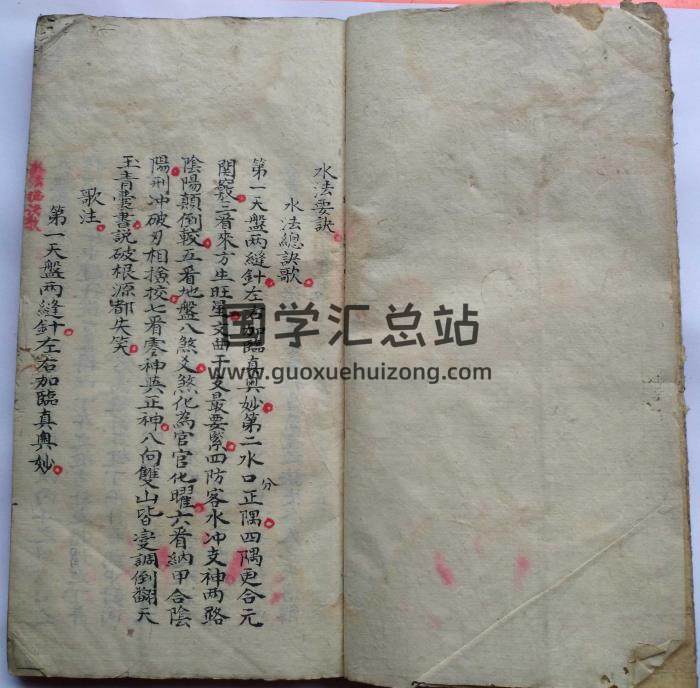 水法要訣
水法總訣歌
第一天盤兩縫針左右加臨真奧妙第二水口正分隅四隅更合元
関竅三看來方生旺墓文曲干支最要緊四防客水冲支神两路
陰陽顛倒載五看地盤八煞爻煞化為官官化曜六看納甲合陰
陽刑冲破刃相撿挍七看零神與正神八向雙山皆变調倒翻天
玉青囊書説破根源都失笑
歌注
第一天盤兩縫針左右加臨真奧妙
水法總訣歌
国学汇总站
www.guoxuehuizong.com